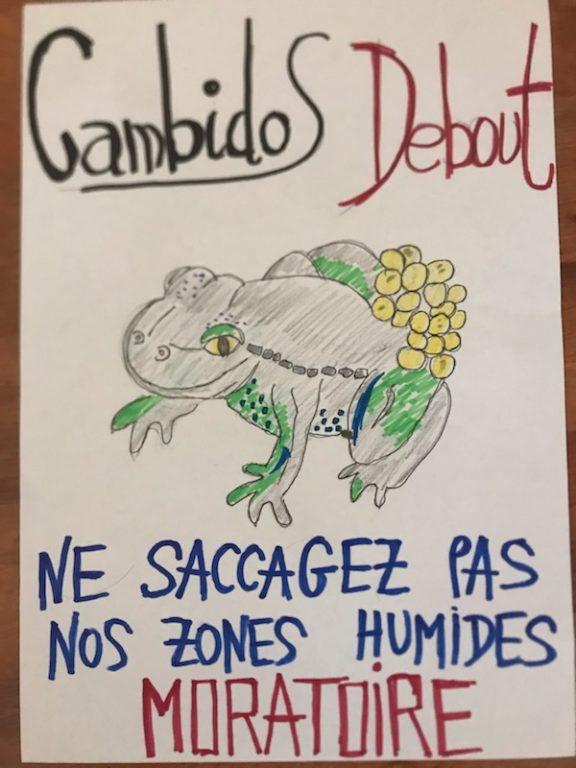 Cambidos Debout
NE SACCAGEZ PAS
NOS ZONES HUMIDES
MORATOIRE